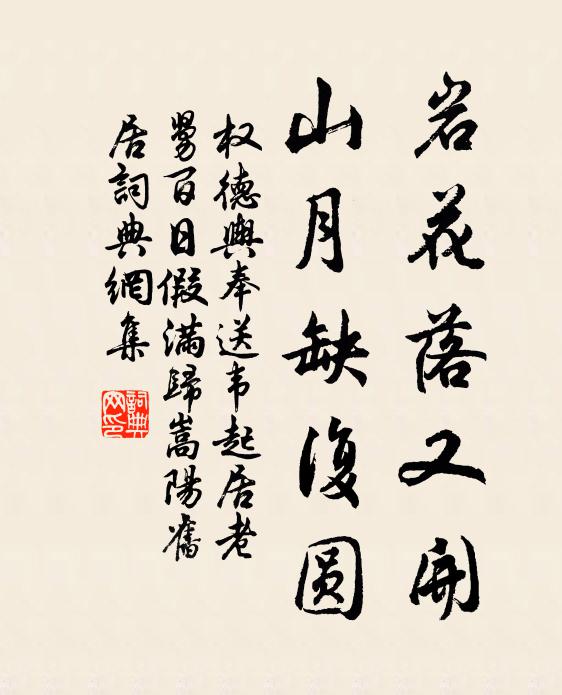 岩花落又開
山月缺復圆
权德輿奉送韦起居老
舅百日假满歸嵩陽舊
居詞典網集
詞典
网印